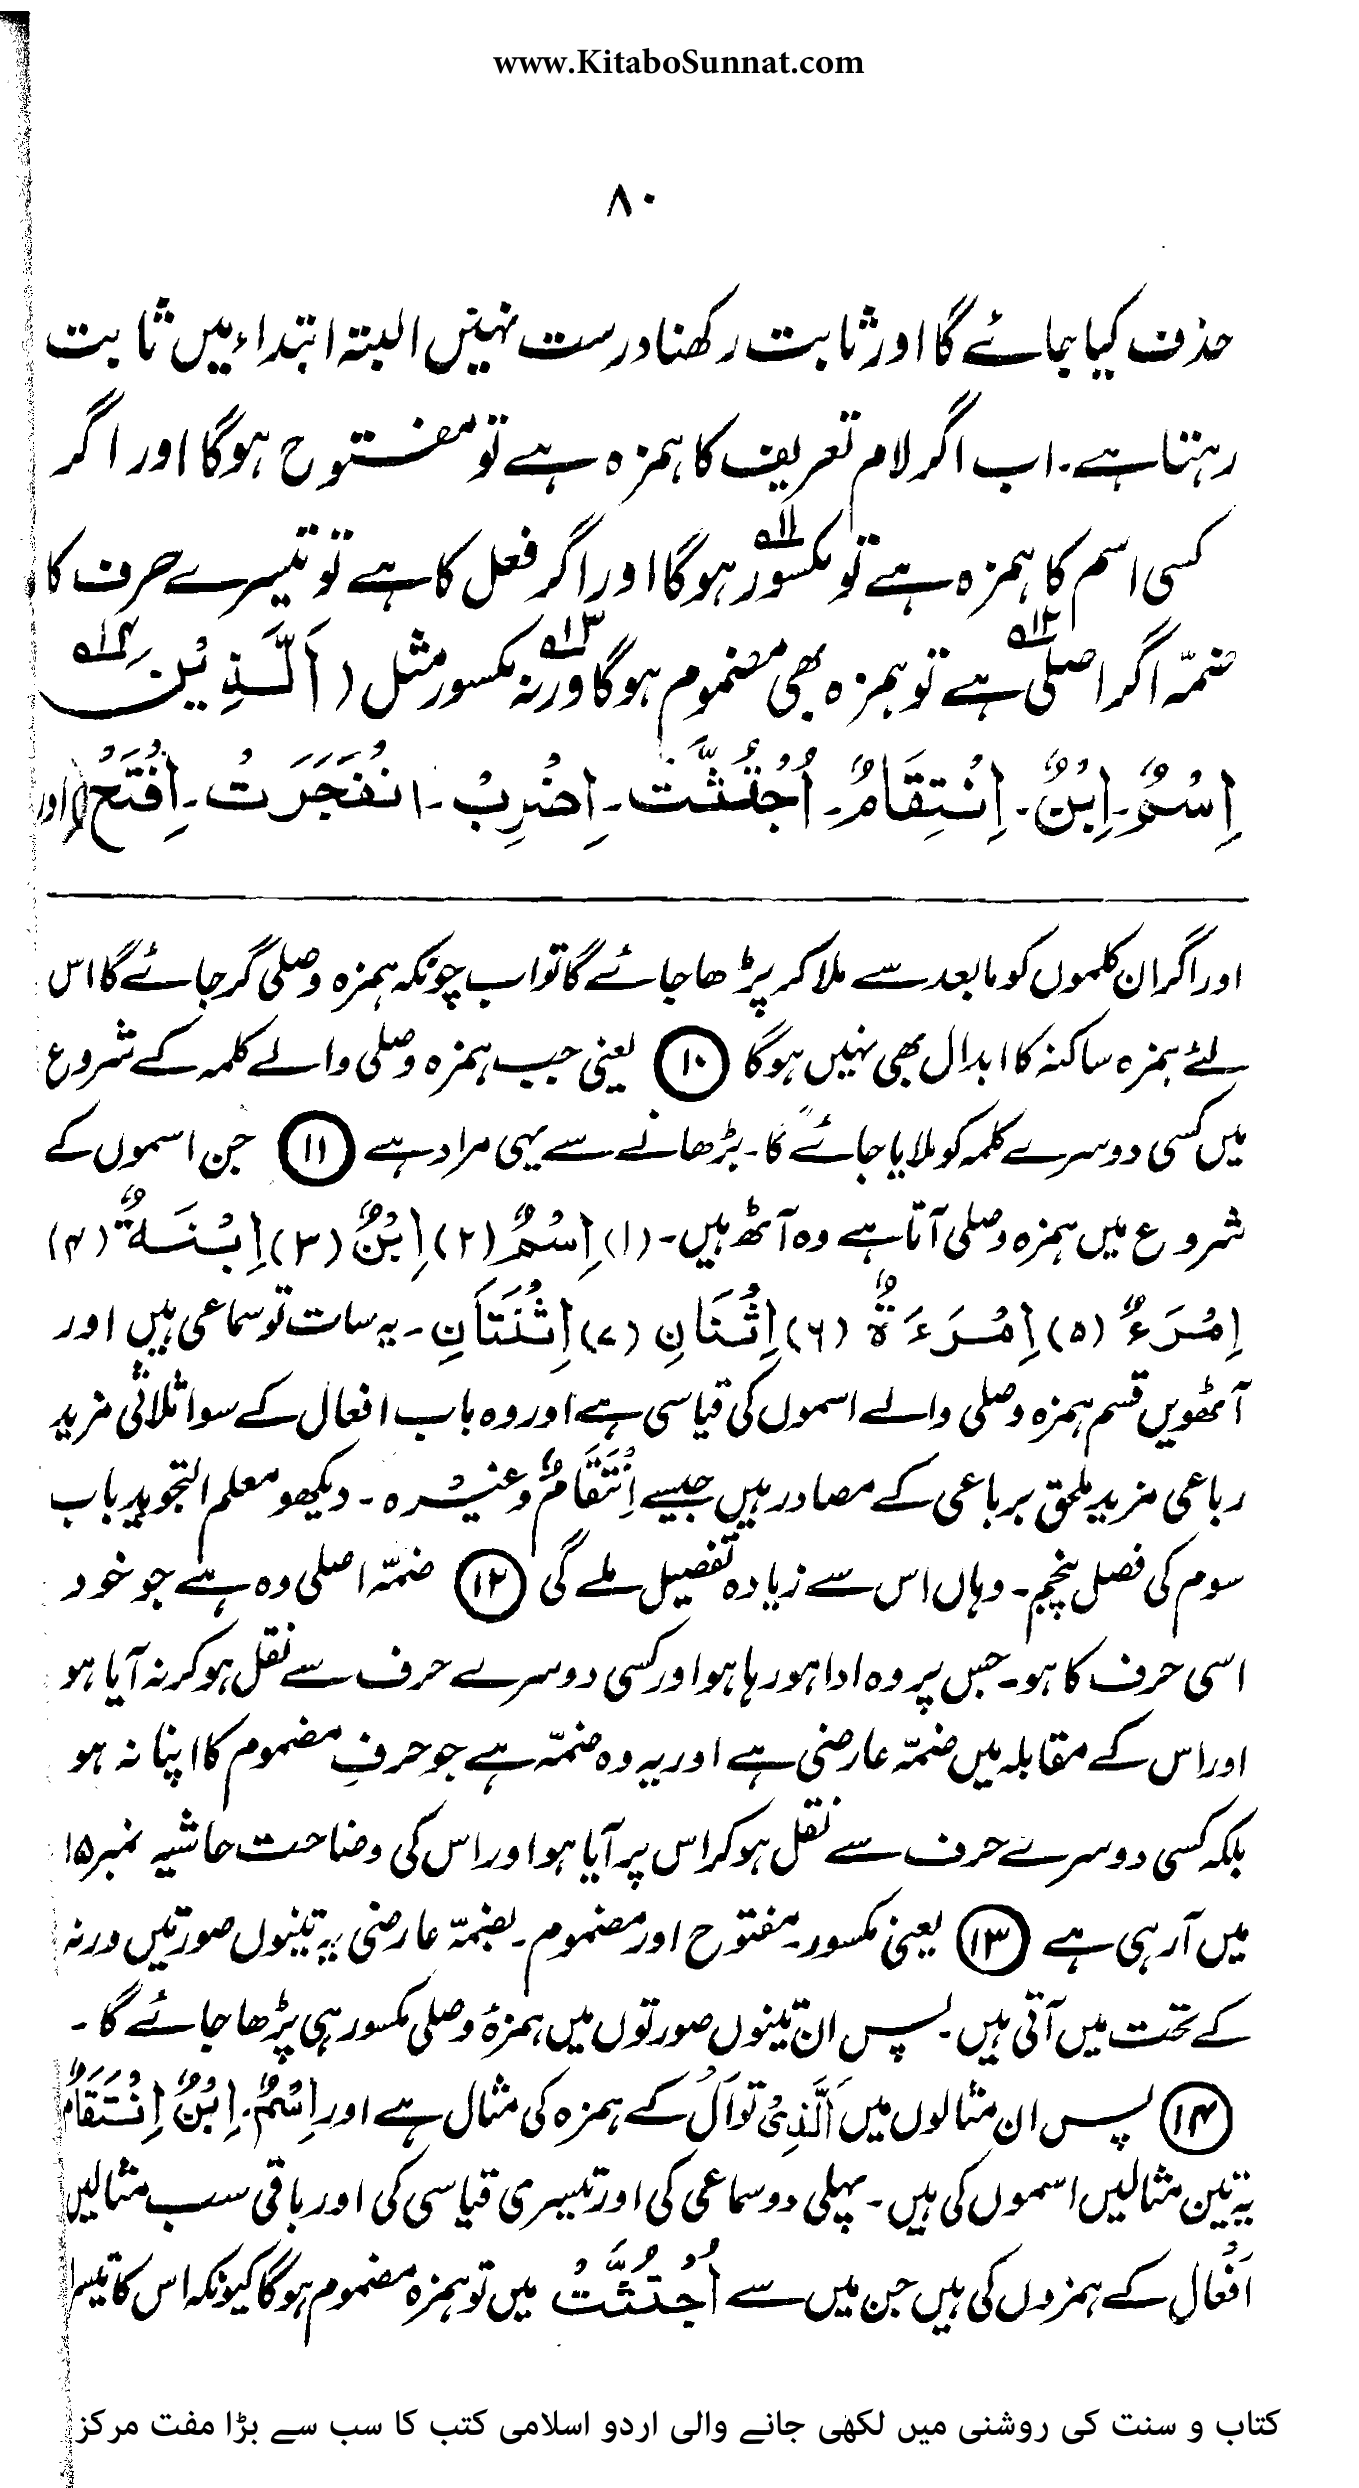 www.KitaboSunnat.com
۸۰
حذف کیا جائے گا اور ثابت رکھنا درست نہیں البتہ ابتداء میں ثابت
رہتا ہے۔ اب اگر لام تعریف کا ہمزہ ہے تو مفتوح ہوگا اور اگر
کسی اسم کا ہمزہ ہے تو مکسور ؁۱۱ ہوگا اور اگر فعل کا ہے تو تیسرے حرف کا
ضمّہ اگر اصلی ؁۱۲ ہے تو ہمزہ بھی مضموم ہوگا ورنہ ؁۱۳ مکسور مثل (اَلَّذِيْنَ ؁۱۴
اِسْمٌ۔ اِبْنٌ۔ اِنْتِقَامٌ۔ اُجْتُثَّتْ۔ اِضْرِبْ۔ انْفَجَرَتْ۔ اِفْتَحْ) اور
اور اگر ان کلموں کو مابعد سے ملا کر پڑھا جائے گا تو اب چونکہ ہمزہ وصلی گر جائے گا اس
لئے ہمزہ ساکنہ کا ابدال بھی نہیں ہوگا ۱۰ یعنی جب ہمزہ وصلی والے کلمہ کے شروع
میں کسی دوسرے کلمہ کو ملایا جائے گا۔ بڑھانے سے یہی مراد ہے ۱۱ جن اسموں کے
شروع میں ہمزہ وصلی آتا ہے وہ آٹھ ہیں۔ (۱) اِسْمٌ (۲) اِبْنٌ (۳) اِبْنَةٌ (۴)
اِمْرَءٌ (۵) اِمْرَءَةٌ (۶) اِثْنَانِ (۷) اِثْنَتَانِ۔ یہ سات تو سماعی ہیں اور
آٹھویں قسم ہمزہ وصلی والے اسموں کی قیاسی ہے اور وہ باب افعال کے سوا ثلاثی مزید
رباعی مزید ملحق برباعی کے مصادر ہیں جیسے اِنْتَقَامٌ وغیرہ۔ دیکھو معلم التجوید باب
سوم کی فصل پنجم۔ وہاں اس سے زیادہ تفصیل ملے گی ۱۲ ضمّہ اصلی وہ ہے جو خود
اسی حرف کا ہو۔ جس پر وہ ادا ہو رہا ہو اور کسی دوسرے حرف سے نقل ہو کر نہ آیا ہو
اور اس کے مقابلہ میں ضمّہ عارضی ہے اور یہ وہ ضمّہ ہے جو حرفِ مضموم کا اپنا نہ ہو
بلکہ کسی دوسرے حرف سے نقل ہو کر اس پر آیا ہو اور اس کی وضاحت حاشیہ نمبر ۱۵
میں آ رہی ہے ۱۳ یعنی مکسور۔ مفتوح اور مضموم۔ بضمّہ عارضی یہ تینوں صورتیں ورنہ
کے تحت میں آتی ہیں۔ پس ان تینوں صورتوں میں ہمزۂ وصلی مکسور ہی پڑھا جائے گا۔
۱۴ پس ان مثالوں میں اَلَّذِیْ تو اَلْ کے ہمزہ کی مثال ہے اور اِسْمٌ۔ اِبْنٌ اِنْتَقَامٌ
یہ تین مثالیں اسموں کی ہیں۔ پہلی دو سماعی کی اور تیسری قیاسی کی اور باقی سب مثالیں
اَفْعال کے ہمزوں کی ہیں جن میں سے اُجْتُثَّتْ میں تو ہمزہ مضموم ہوگا کیونکہ اس کا تیسرا
کتاب و سنت کی روشنی میں لکھی جانے والی اردو اسلامی کتب کا سب سے بڑا مفت مرکز